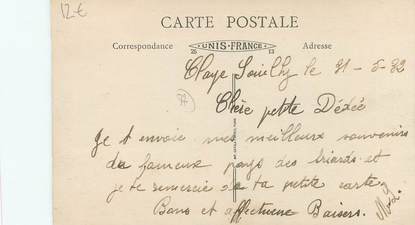 12€
CARTE POSTALE
Correspondance UNIS-FRANCE Adresse
Claye Souilly le 21-5-32
Chère petite Dédée
Je t envoie mes meilleurs souvenirs
du fameux pays des briards et
je te remercie de ta petite carte
Bons et affectueux Baisers.